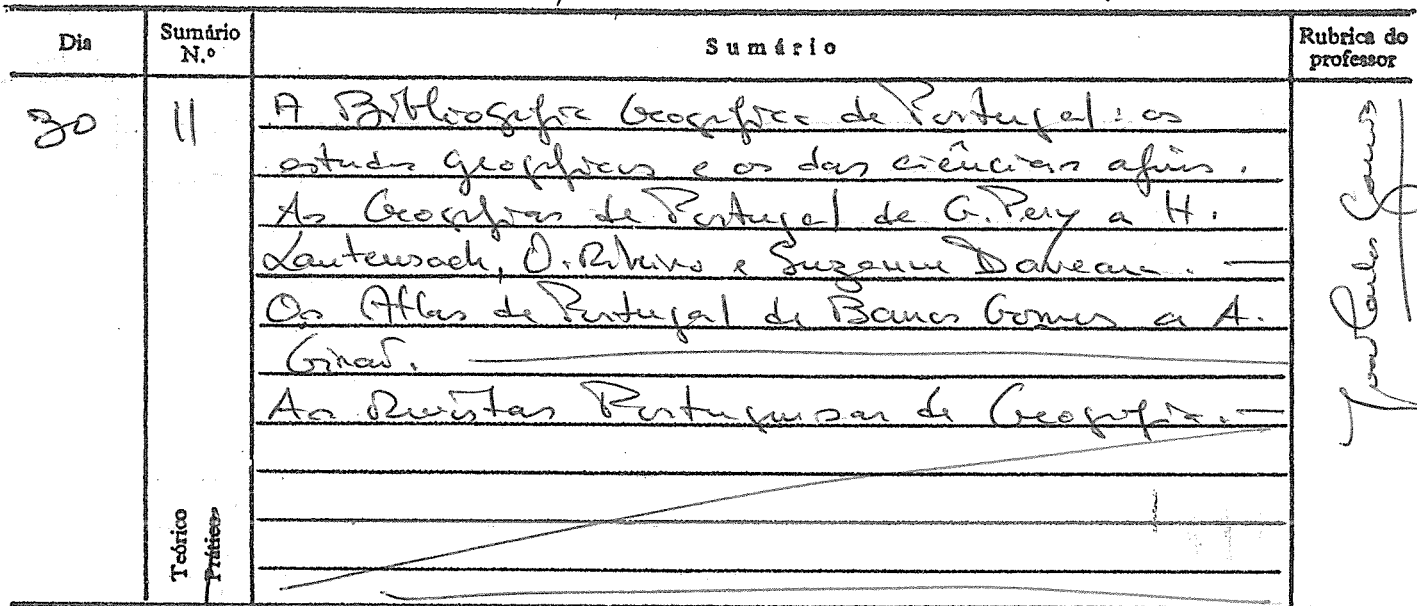 Dia
Sumário N.º
Sumário
Rubrica do professor
30
11
A Bibliografia Geografica de Portugal: os
estudos geográficos e os das ciências afins.
As Geografias de Portugal de G. Pery a H.
Lautensach, O. Ribeiro e Suzanne Daveau. —
Os Atlas de Portugal de Barros Gomes a A.
Girão.
As Revistas Portuguesas de Geografia. —
Teórico
Prático